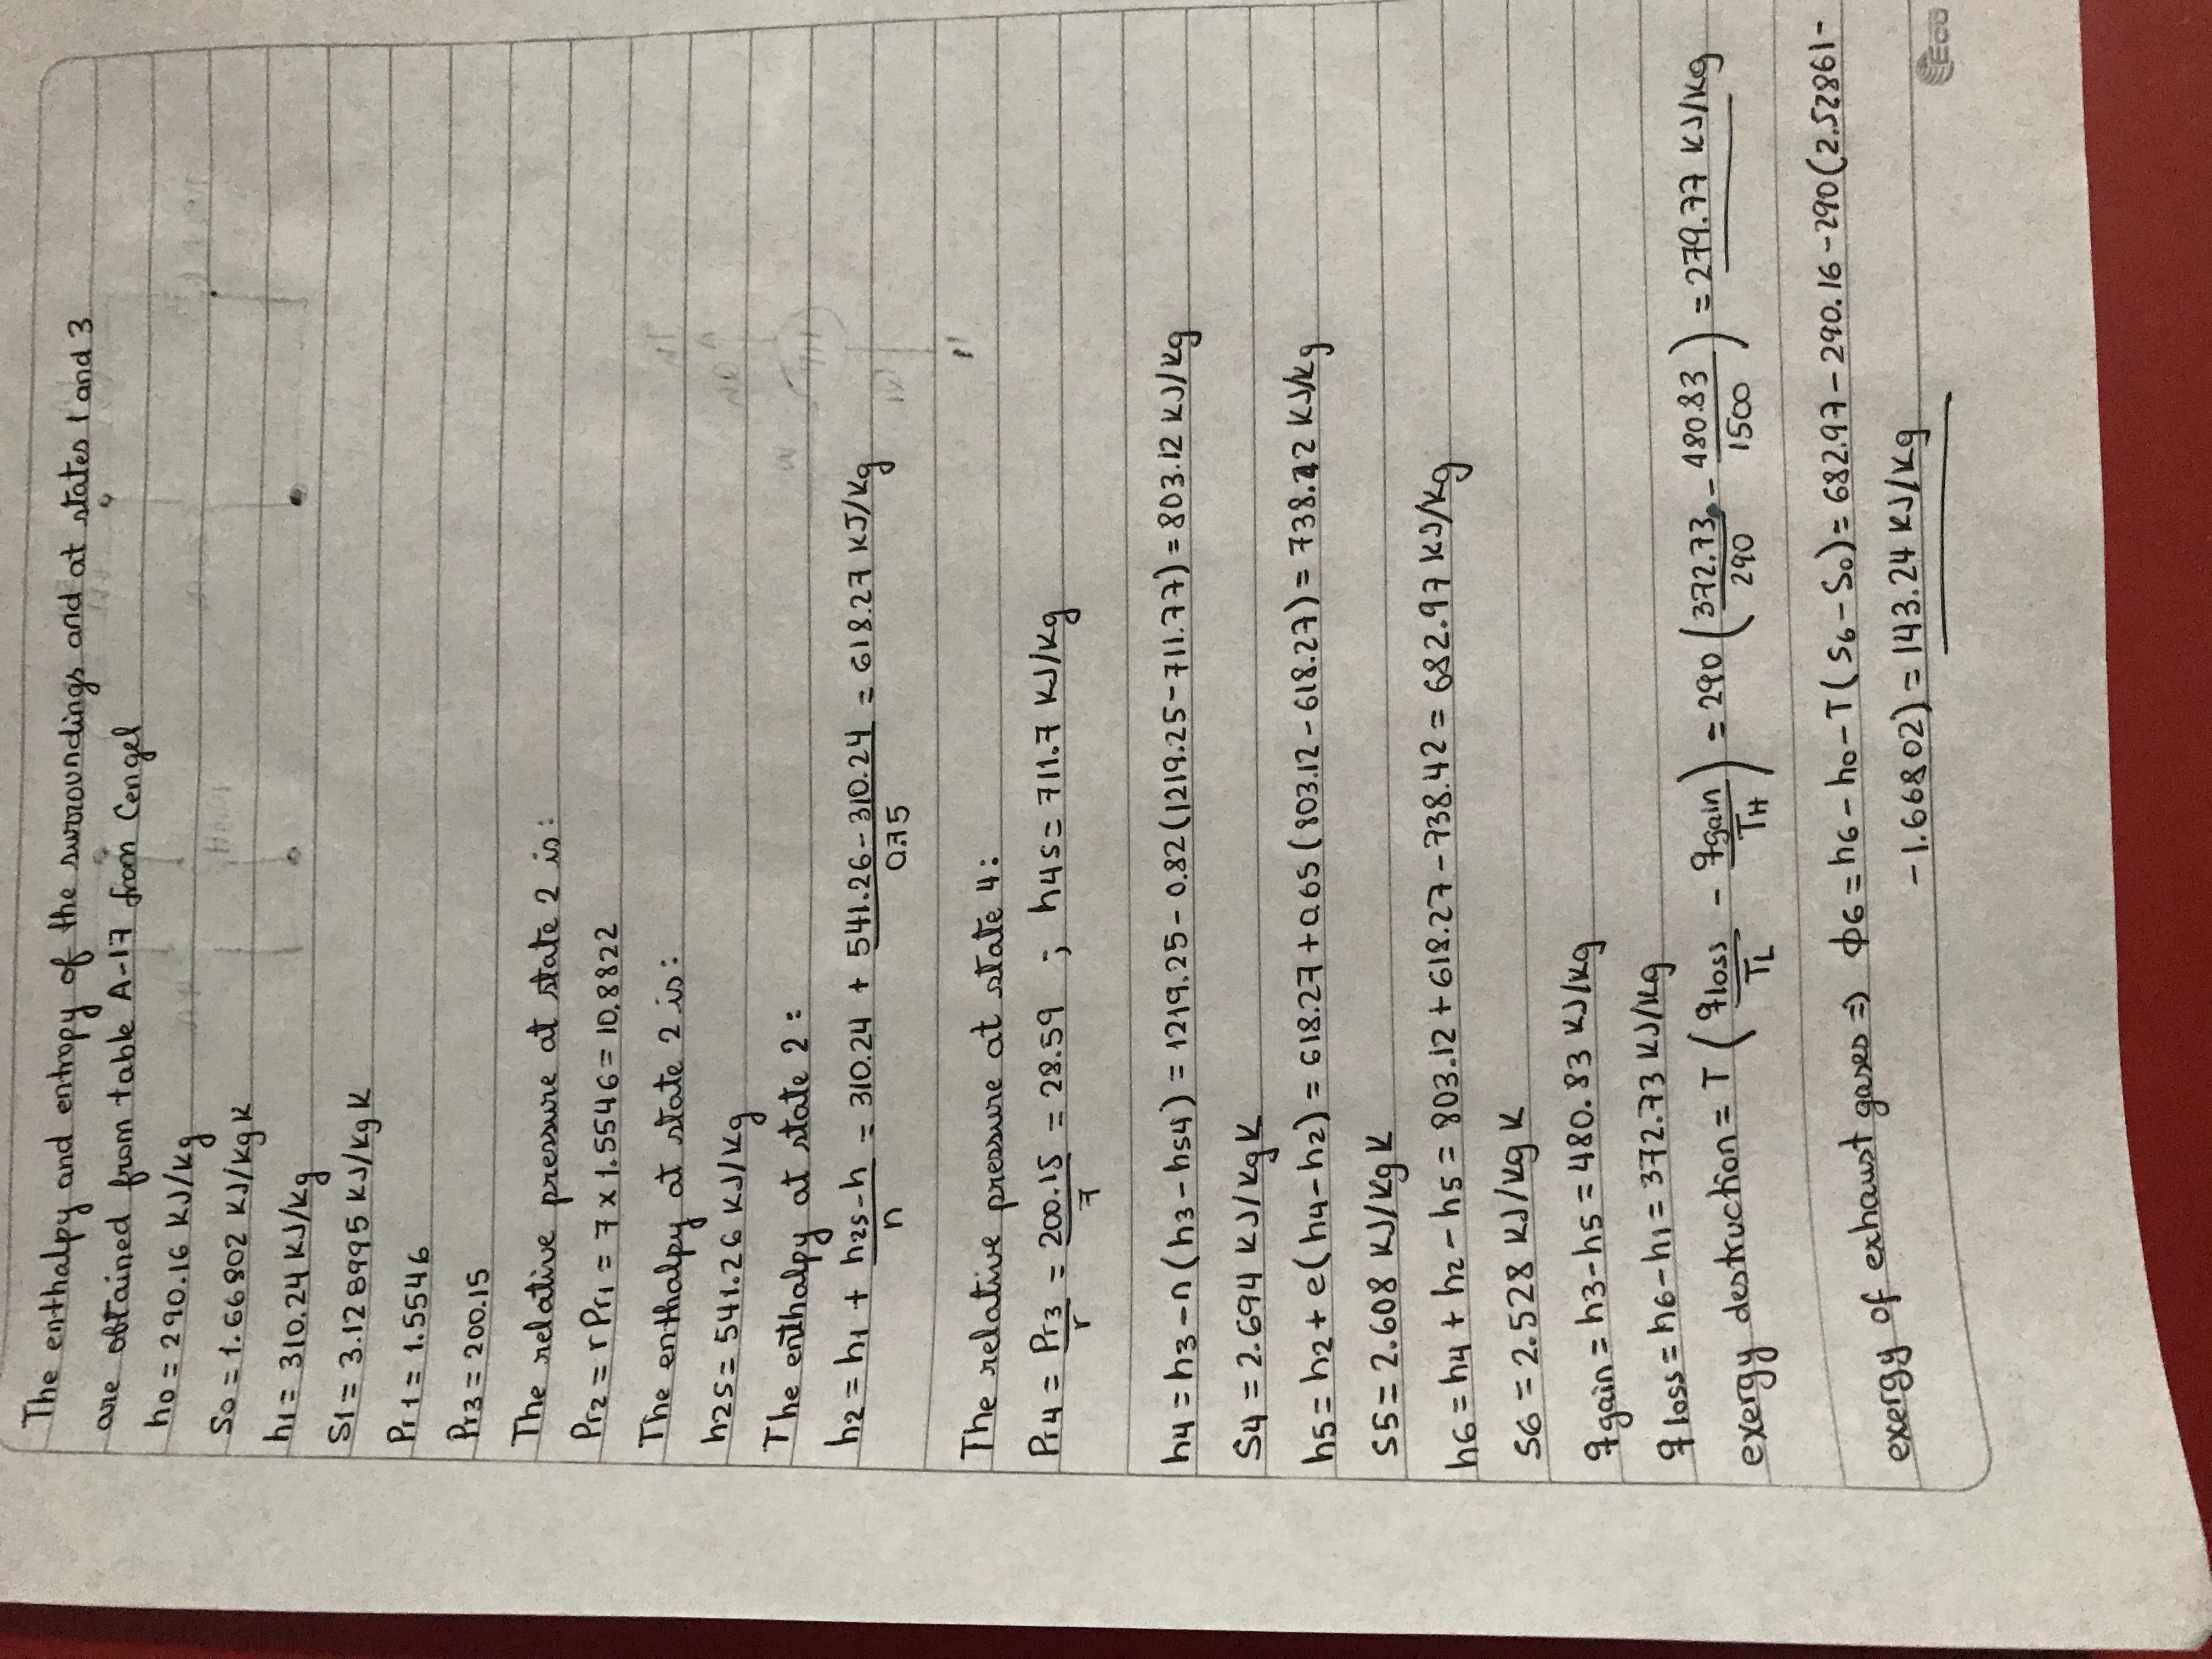 The enthalpy and entropy of the surroundings and at states 1 and 3
are obtained from table A-17 from Cengel
h0 = 290.16 KJ/kg
S0 = 1.66802 KJ/kgK
h1 = 310.24 KJ/kg
S1 = 3.128995 KJ/kgK
Pr1 = 1.5546
Pr3 = 200.15
The relative pressure at state 2 is:
Pr2 = rPr1 = 7 x 1.5546 = 10.8822
The enthalpy at state 2 is:
h2s = 541.26 KJ/kg
The enthalpy at state 2:
h2 = h1 + (h2s-h)/n = 310.24 + (541.26-310.24)/0.75 = 618.27 KJ/kg
The relative pressure at state 4:
Pr4 = Pr3/r = 200.15/7 = 28.59 ; h4s = 711.7 KJ/kg
h4 = h3-n(h3-hs4) = 1219.25-0.82(1219.25-711.77) = 803.12 KJ/kg
S4 = 2.694 KJ/kgK
h5 = h2+e(h4-h2) = 618.27+0.65(803.12-618.27) = 738.42 KJ/kg
S5 = 2.608 KJ/kgK
h6 = h4+h2-h5 = 803.12+618.27-738.42 = 682.97 KJ/kg
S6 = 2.528 KJ/kgK
qgain = h3-h5 = 480.83 KJ/kg
qloss = h6-h1 = 372.73 KJ/kg
exergy destruction = T (qloss/TL - qgain/TH) = 290 (372.73/290 - 480.83/1500) = 279.77 KJ/kg
exergy of exhaust gases ⇒ ϕ6 = h6-h0-T(S6-S0) = 682.97-290.16-290(2.52861-
-1.66802) = 143.24 KJ/kg
ECO